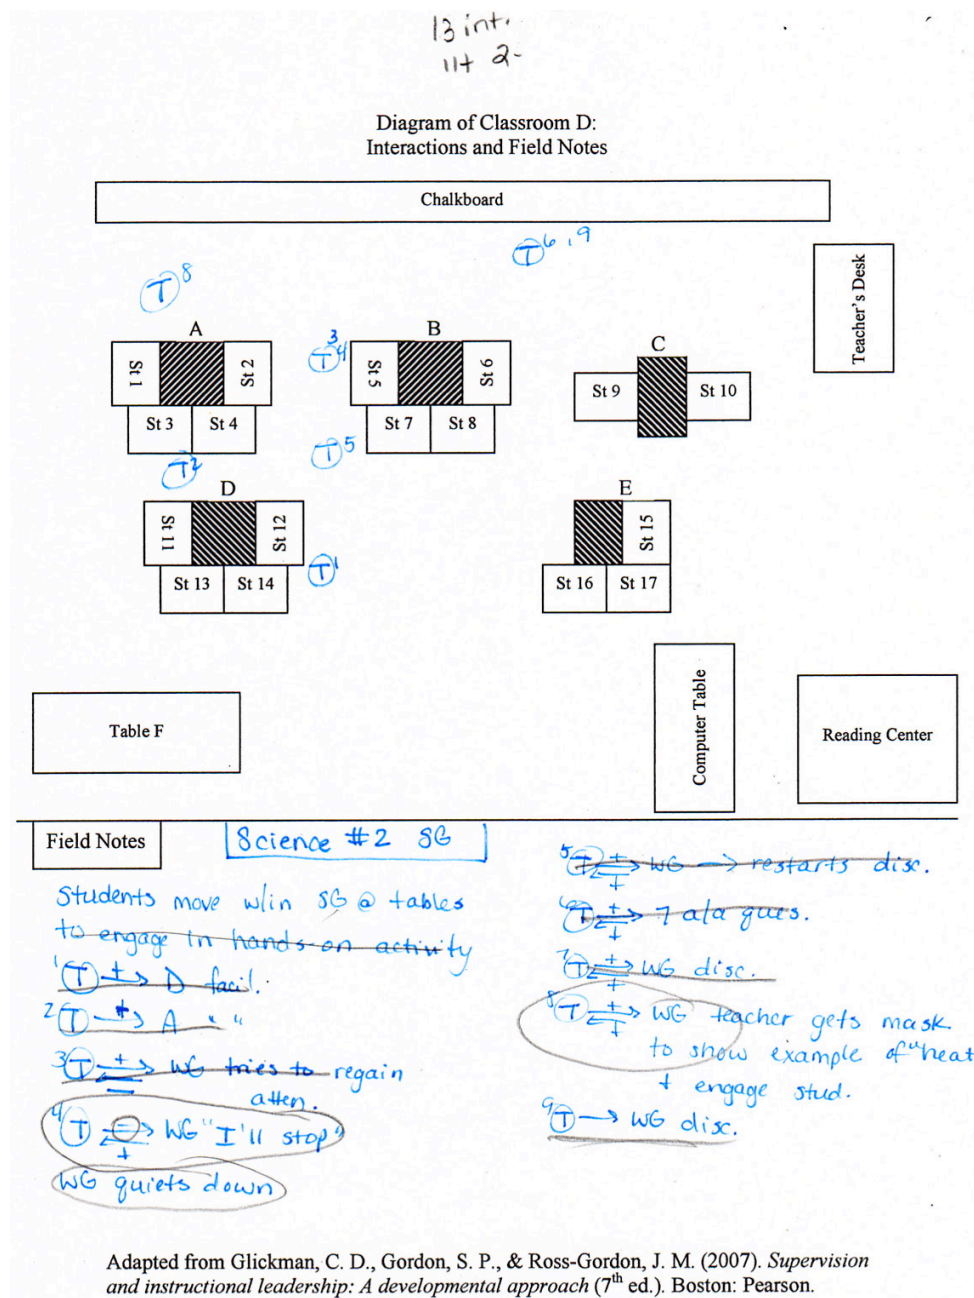 13 int.
11+ 2-
Diagram of Classroom D:
Interactions and Field Notes
Chalkboard
T 6, 9
T 8
Teacher's Desk
A
B
C
St 1
St 2
St 3
St 4
T 3 4
St 5
St 6
St 7
St 8
St 9
St 10
T 2
T 5
D
E
St 11
St 12
St 13
St 14
T 1
St 15
St 16
St 17
Table F
Computer Table
Reading Center
Field Notes
Science #2 SG
Students move w/in SG @ tables
to engage in hands-on activity
1 T + → D facil.
2 T + → A " "
3 T + ⇄ = WG tries to regain
atten.
4 T - ⇄ + WG "I'll stop"
WG quiets down
5 T + ⇄ + WG → restarts disc.
6 T + ⇄ + 7 a/a ques.
7 T + ⇄ + WG disc.
8 T + ⇄ + WG teacher gets mask
to show example of "heat
+ engage stud.
9 T → WG disc.
Adapted from Glickman, C. D., Gordon, S. P., & Ross-Gordon, J. M. (2007). Supervision
and instructional leadership: A developmental approach (7th ed.). Boston: Pearson.